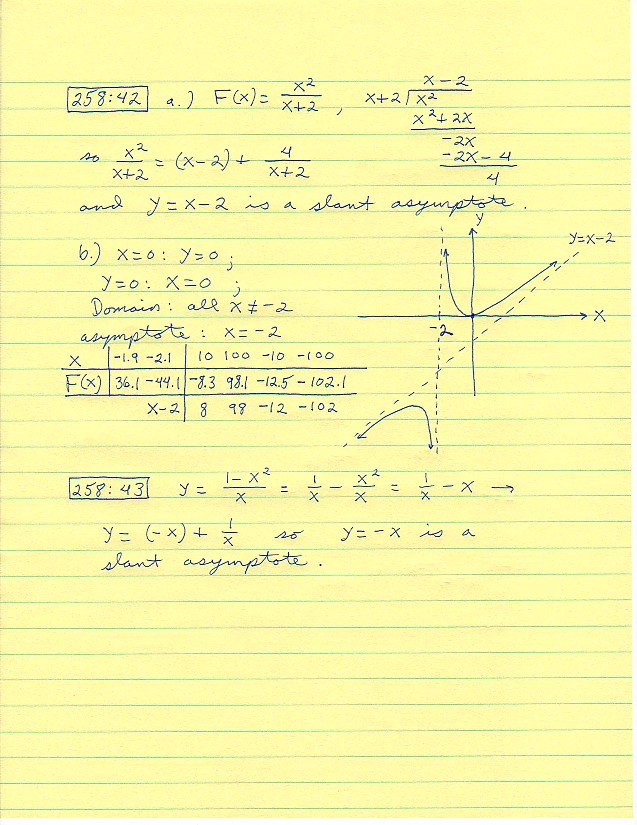 258:42 a.) F(x) = x²/(x+2) ,
x-2
x+2 ) x²
x²+2x
-2x
-2x-4
4
so x²/(x+2) = (x-2) + 4/(x+2)
and y = x-2 is a slant asymptote.
b.) x=0 : y=0 ;
y=0 : x=0 ;
Domain : all x ≠ -2
asymptote : x = -2
x | -1.9 -2.1 | 10 100 -10 -100
F(x) | 36.1 -44.1 | -8.3 98.1 -12.5 -102.1
x-2 | 8 98 -12 -102
y
y=x-2
x
-2
258:43 y = (1-x²)/x = 1/x - x²/x = 1/x - x →
y = (-x) + 1/x so y = -x is a
slant asymptote.